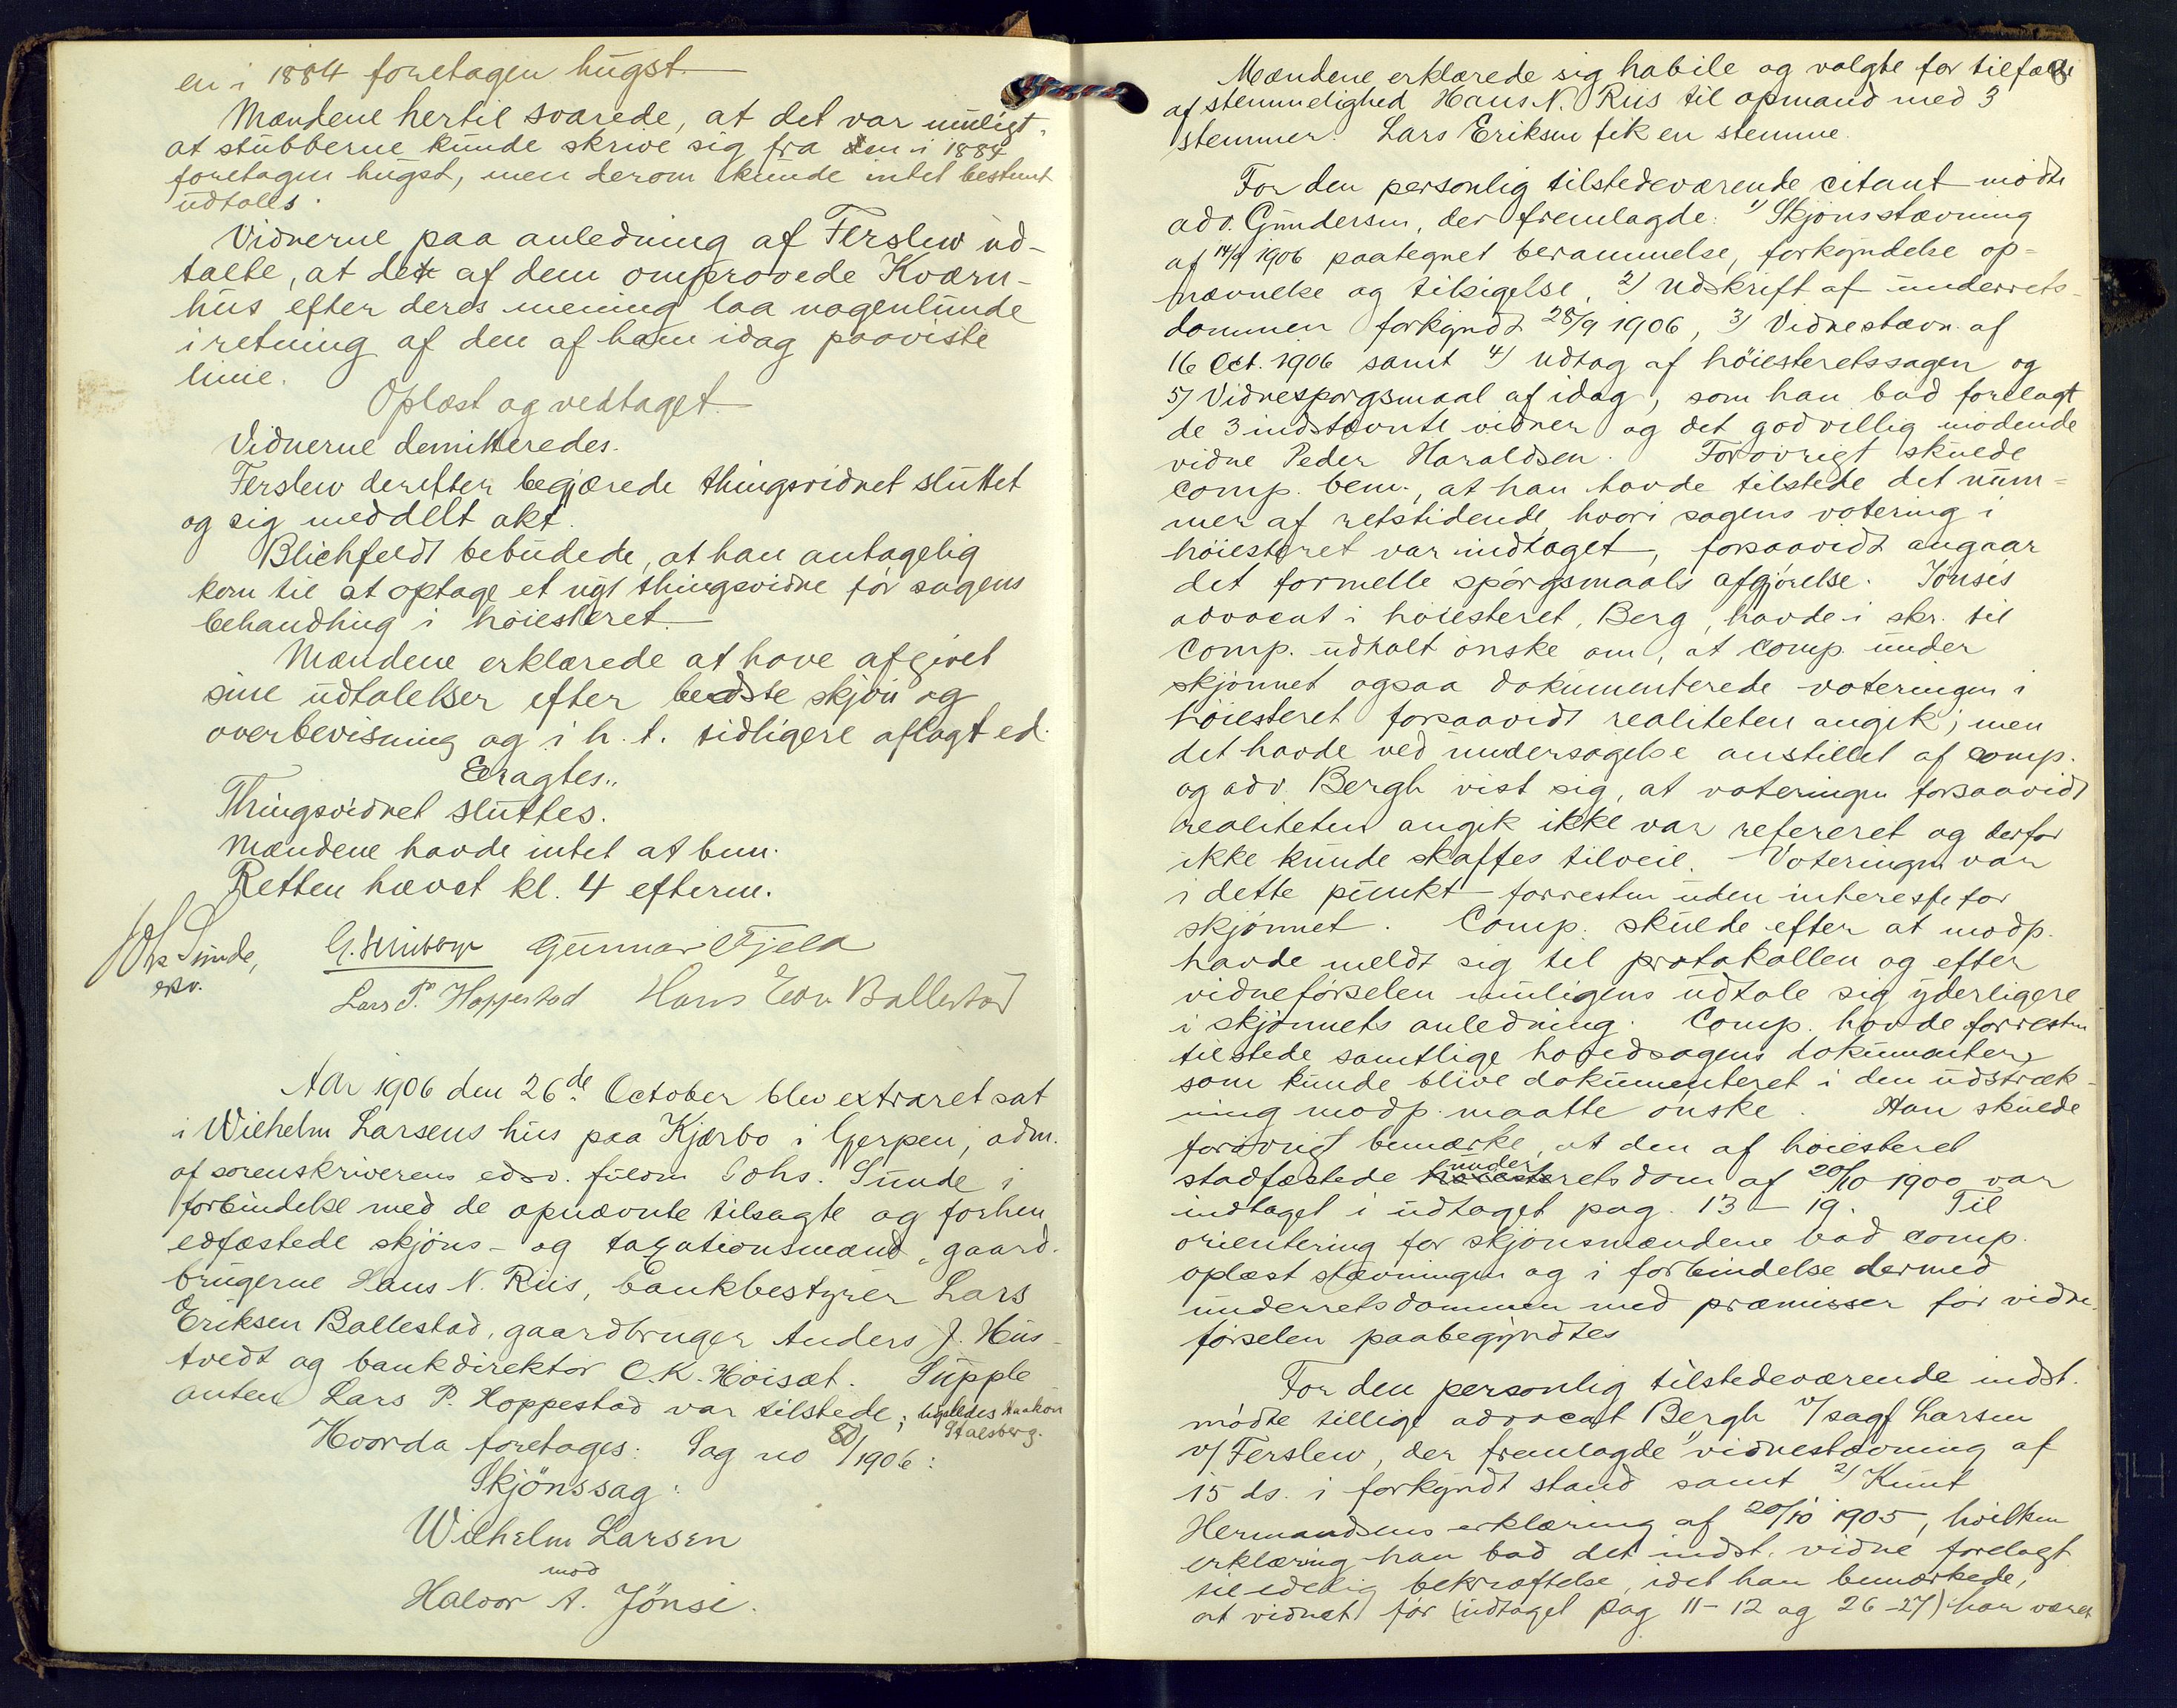 en i 1884 foretagen hugst.
Mændene hertil svarede, at det var muligt,
at stubberne kunde skrive sig fra den i 1884
foretagen hugst, men derom kunde intet bestemt
udtales.
Vidnerne paa anledning af Ferslew ud-
talte, at det af dem omprøvede Kværn-
hus efter deres mening laa nogenlunde
i retning af den af ham idag paaviste
linie.
Oplæst og vedtaget.
Vidnerne demitteredes.
Ferslew derefter begjærede thingsvidnet sluttet
og sig meddelt akt.
Blichfeldt bebudede, at han antagelig
kom til at optage et nyt thingsvidne før sagens
behandling i høiesteret.
Mændene erklærede at have afgivet
sine udtalelser efter bedste skjøn og
overbevisning og i h. t. tidligere aflagt ed.
Eragtes:
Thingsvidnet sluttes.
Mændene havde intet at bem.
Retten hævet kl. 4 efterm.
Johs Sunde, Gunnar Fjeld
esv.
Lars P. Hoppestad Hans Edv. Ballestad
Aar 1906 den 26de October blev extraret sat
i Wilhelm Larsens hus paa Kjærbo i Gjerpen, adm.
af sorenskriverens edsv. fuldm Johs. Sunde i
forbindelse med de opnævnte tilsagte og forhen
edfæstede skjøns- og taxationsmænd, gaard-
brugerne Hans N. Riis, bankbestyrer Lars
Eriksen Ballestad, gaardbruger Anders J. Hus-
tvedt og bankdirektør O.K. Høisæt. Supple
anten Lars P. Hoppestad var tilstede; ligeledes Haakon
Stalsberg.
Hvorda foretages: Sag no 80/1906:
Skjönssag:
Wilhelm Larsen
mod
Halvor A. Jönsi.
Mændene erklærede sig habile og valgte for tilfælde
af stemmelighed Hans N. Riis til opmand med 3
stemmer. Lars Eriksen fik en stemme.
For den personlig tilstedeværende citant mødte
adv. Gundersen, der fremlagde: 1) Skjønsstævning
af 14/9 1906 paategnet berammelse, forkyndelse op-
nævnelse og tilsigelse, 2) Udskrift af underrets-
dommen forkyndt 28/9 1906, 3) Vidnestævn. af
16 Oct. 1906 samt 4) Udtog af høiesteretssagen og
5) Vidnespørgsmaal af idag, som han bad forelagt
de 3 indstævnte vidner og det godvillig mødende
vidne Peder Haraldsen. Forøvrigt skulde
comp. bem., at han havde tilstede det num-
mer af retstidende, hvori sagens votering i
høiesteret var indtaget, forsaavidt angaar
det formelle spørgsmaals afgjørelse. Jönsis
advocat i høiesteret, Berg, havde i skr. til
comp. udtalt ønske om, at comp. under
skjønnet ogsaa dokumenterede voteringen i
høiesteret forsaavidt realiteten angik; men
det havde ved undersøgelse anstillet af comp.
og adv. Bergh vist sig, at voteringen forsaavidt
realiteten angik ikke var refereret og derfor
ikke kunde skaffes tilveie. Voteringen var
i dette punkt forresten uden interesse for
skjønnet. Comp. skulde efter at modp.
havde meldt sig til protokollen og efter
vidneførselen muligens udtale sig yderligere
i skjønnets anledning. Comp. havde forresten
tilstede samtlige hovedsagens dokumenter,
som kunde blive dokumenteret i den udstræk-
ning modp. maatte ønske. Han skulde
forøvrigt bemærke, at den af høiesteret
stadfæstede underretsdom af 20/10 1900 var
indtaget i udtoget pag. 13 - 19. Til
orientering for skjønsmændene bad comp.
oplæst stævningen og i forbindelse dermed
underretsdommen med præmisser før vidne-
førselen paabegyndtes
For den personlig tilstedeværende indst.
mødte tillige advocat Bergh v/ sagf Larsen
v/ Ferslew, der fremlagde 1) vidnestævning af
15 ds. i forkyndt stand samt 2) Knut
Hermandsens erklæring af 20/10 1905, hvilken
erklæring han bad det indst. vidne forelagt
til edelig bekræftelse, idet han bemærkede,
at vidnet før (udtoget pag 11-12 og 26-27) har været